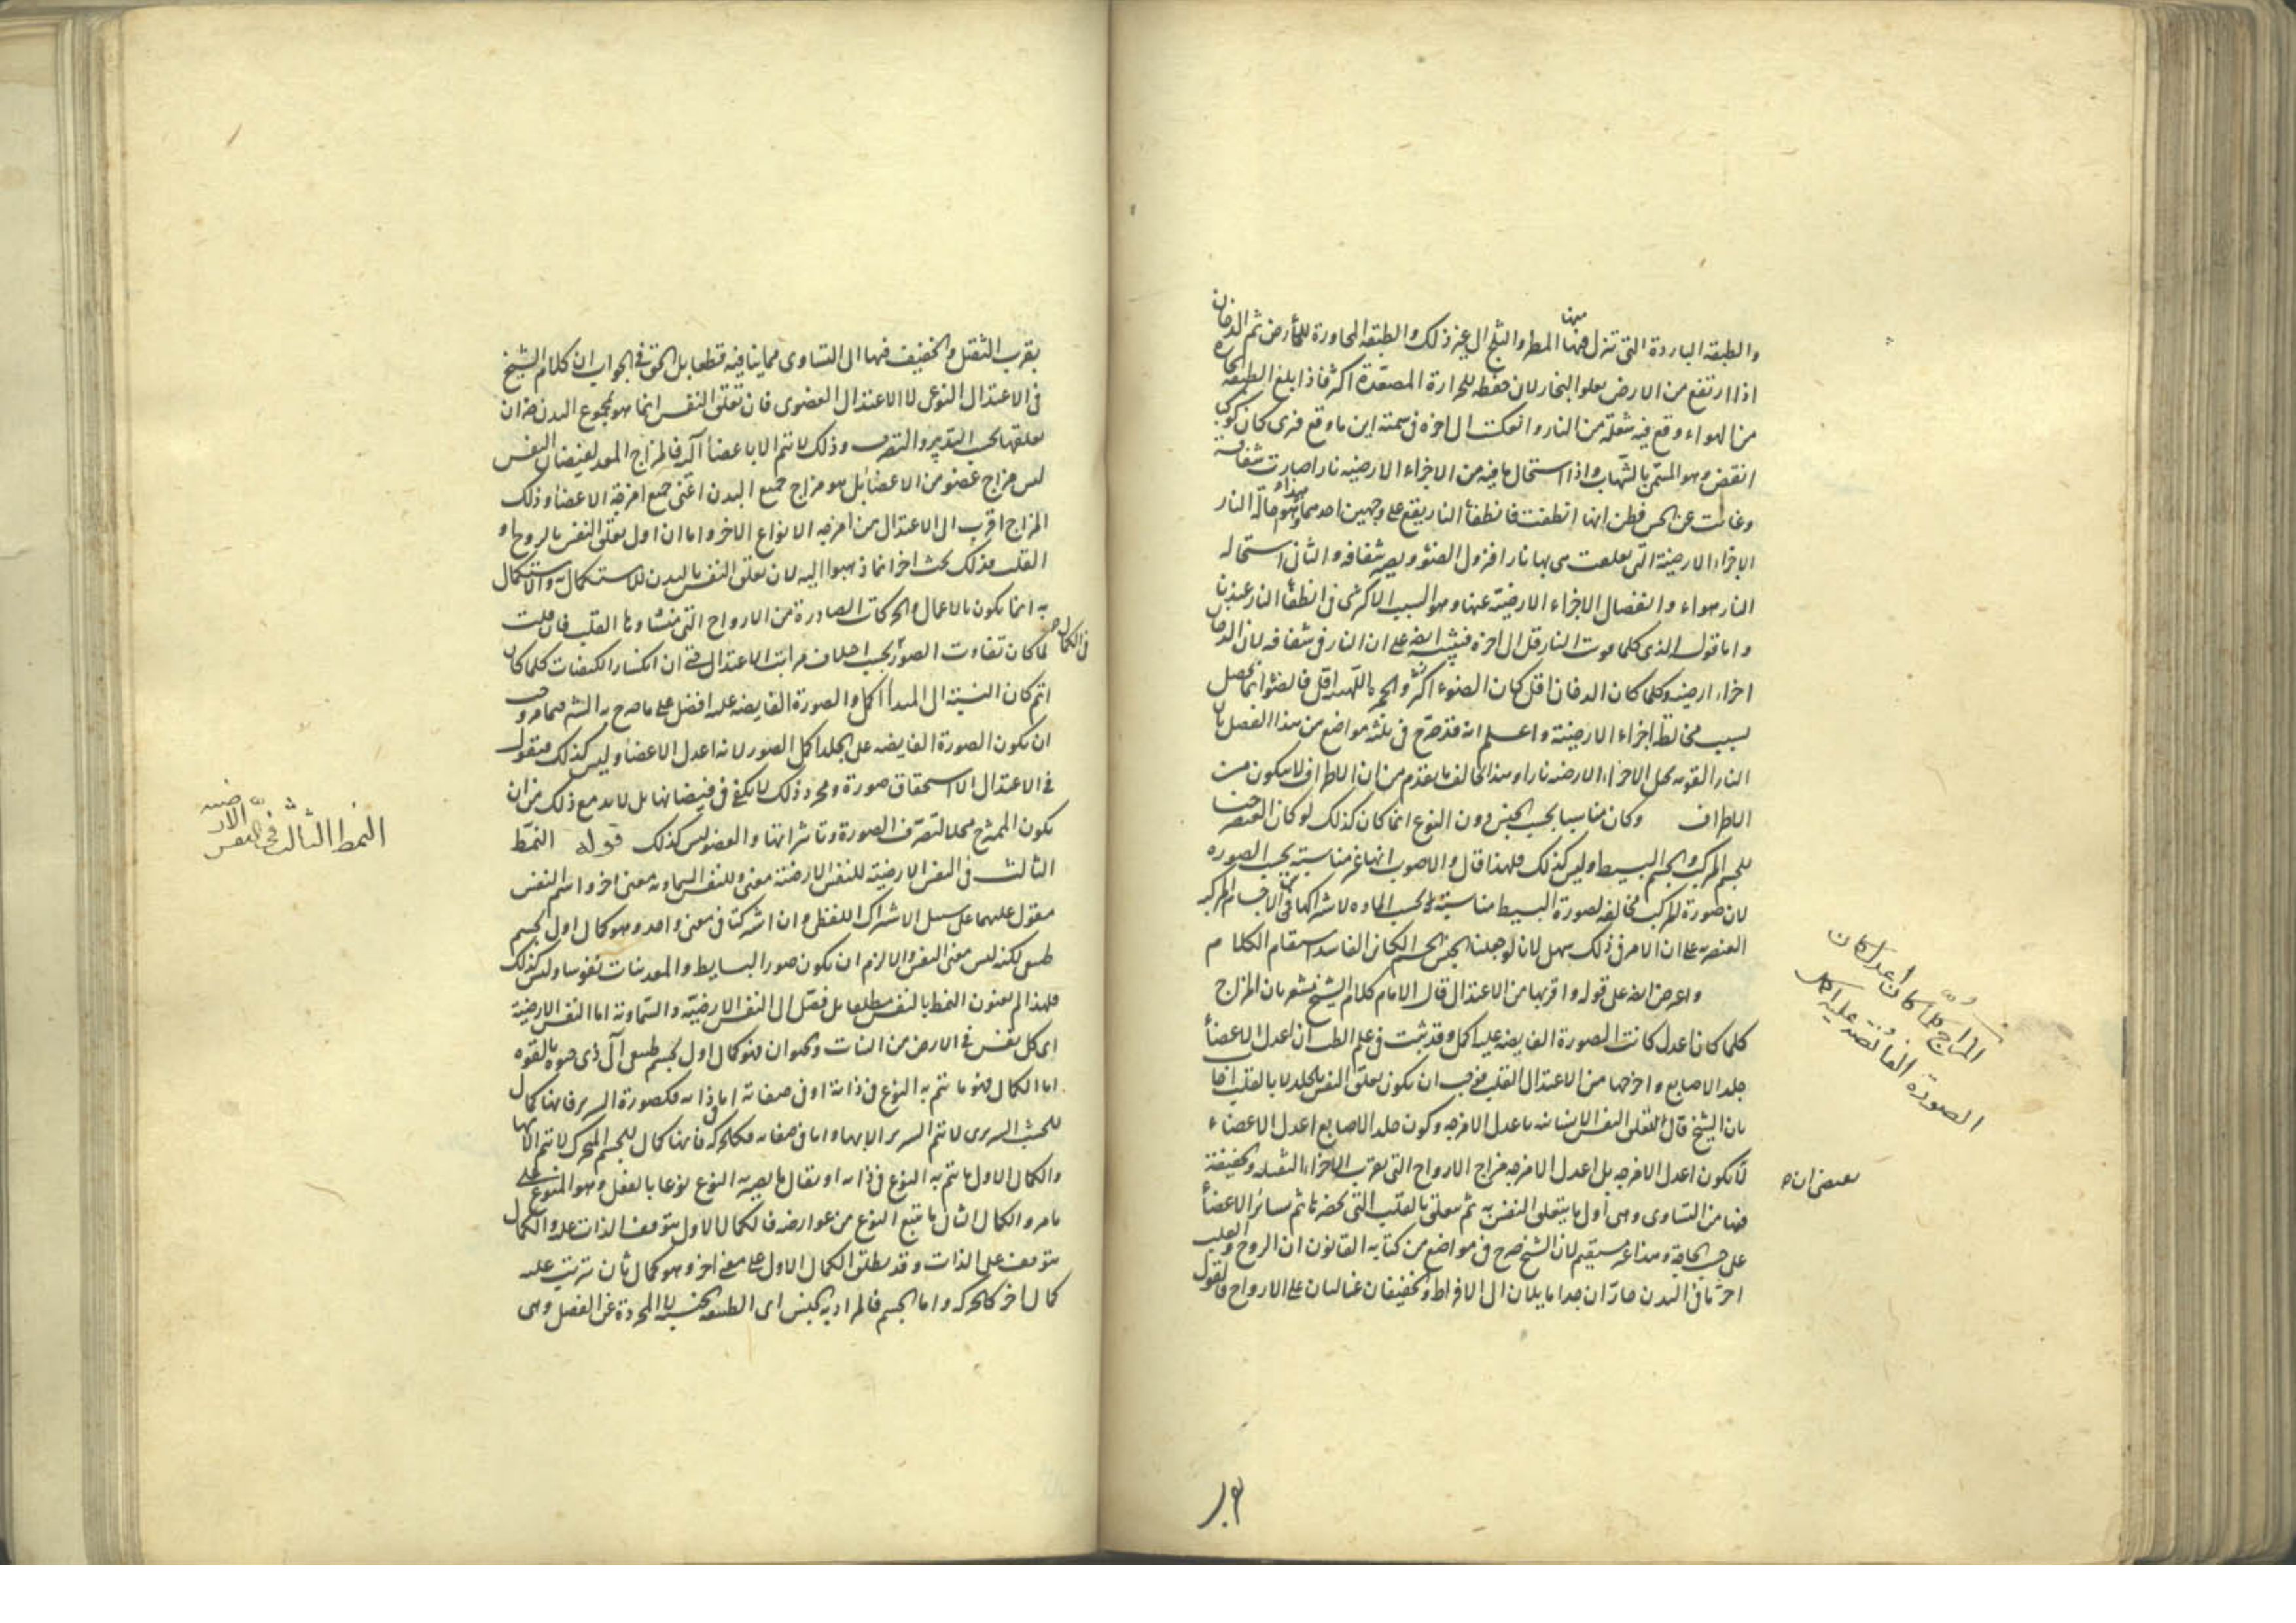 والطبقه الباردة التى تنزل منها المطر والثلج الى غير ذلك والطبقه المجاورة للأرض ثم الدخان
اذا ارتفع من الارض يعلو البخار لان حفظه للحرارة المصعّدة اكثر فاذا بلغ الطبقه الحارة
من الهواء وقع فيه شعلة من النار والعكت الى اخره فى سمته اين ما وقع فترى كان كوكبا
انقض وهو المسمّى بالشهاب واذا استحال ما فيه من الاجزاء الارضيه نارا صارت شفافة
وغابت عن الحس فظن انها انطفئت فانطفأ النار يقع على وجهين احدهما هذا وهو احالة النار
الاجزاء الارضيّة التى تعلقت هى بها نارا فيزول الضوء ويصير شفافه والثانى استحاله
النار هواء وانفصال الاجزاء الارضيّة عنها وهو السبب الاكثرى فى انطفأ النار عندنا
واما قوله الذى كلما قويت النار قل الى اخره فينبّه ايضه على ان النار فى شفافه لان الدخان
اجزاء ارضيه وكلما كان الدخان اقل كان الضوء اكثر والحمرة اقل فالضوء انما يحصل
بسبب مخالطة اجزاء الارضيّة واعلم انه قد صرّح فى ثلثه مواضع من هذا الفصل بان
النار القويه تحيل الاجزاء الارضيه نارا وهذا يخالف ما تقدم من ان الاطراف لا يتكون من
الاطراف وكان مناسبا بحسب الجنس دون النوع انما كان كذلك لو كان العنصر جنسا
للجسم المركب والجسم البسيط وليس كذلك فلهذا قال والاصوب انها غير مناسبته بحسب الصوره
لان صورة المركب مخالفه لصورة البسيط مناسبته بحسب الماده لاشتراكها فى الاجسام المركبه
العنصريه على ان الامر فى ذلك سهل لانا لو جعلنا الجنس الجسم الكائن الفاسد استقام الكلام
واعرض ايضه على قوله واقربها من الاعتدال قال الامام كلام الشيخ مشعر بان المزاج
كلما كان اعدل كانت الصورة الفايضه عليه اكمل وقد ثبت فى علم الطب ان اعدل الاعضأ
جلد الاصابع واخرجها من الاعتدال القلب فيجب ان يكون تعلق النفس بالجلد لا بالقلب اجاب
بان الشيخ قال لتعلق النفس الانسانيه باعدل الامزجه وكون جلد الاصابع اعدل الاعضاء
لا يكون اعدل الامزجه بل اعدل الامزجه مزاج الارواح التى يقرب الاجزاء الثقيله والخفيفة
فيها من التساوى وهى اول ما يتعلق النفس به ثم يتعلق بالقلب التى تحضره ثم سائر الاعضأ
على حسب الحاجة وهذا غير مستقيم لان الشيخ صرح فى مواضع من كتابه القانون ان الروح والقلب
احرّ ما فى البدن حارّان جدا مايلان الى الافراط والخفيفان غالبان على الارواح فالقول
المزاج كلّما كان اعدل كان
الصورة الفائضة عليه اكمل
يقتضى ان
بقرب الثقيل والخفيف فيها الى التساوى مما ينافيه قطعا بل الحق فى الجواب ان كلام الشيخ
فى الاعتدال النوعى لا الاعتدال العضوى فان تعلق النفس انما هو لمجموع البدن ضر ان
تعلقها بحسب التدبير والتصرف وذلك لا يتم الا باعضأ آليه فالمزاج المعد لفيضان النفس
ليس مزاج عضو من الاعضأ بل هو مزاج جميع البدن اعنى جميع امزجة الاعضأ وذلك
المزاج اقرب الى الاعتدال من امزجه الانواع الاخر واما ان اول تعلق النفس بالروح او
القلب فذلك بحث اخر انما ذهبوا اليه لان تعلق النفس بالبدن للاستكمال به والاستكمال
به انما يكون بالاعمال والحركات الصادرة من الارواح التى منشاؤها القلب فان قلت
لما كان تفاوت الصور بحسب اختلاف مراتب الاعتدال حتى ان انكسار الكيفيات كلما كان
فى الكمال
اتم كان النسبة الى المبدأ اكمل والصورة الفايضه عليه افضل على ما صرح به الشه فيما مر وجب
ان يكون الصورة الفايضه على الجلد اكمل الصور لانه اعدل الاعضأ وليس كذلك فنقول
فى الاعتدال الا استحقاق صورة ومجرد ذلك لا يكفى فى فيضانها بل لابد مع ذلك من ان
يكون الممتزج محلا لتصرّف الصورة وتاثيراتها والعضو ليس كذلك قوله النمط
الثالث فى النفس الارضية للنفس الارضيّة معنى وللنفس السماويه معنى اخر واسم النفس
مقول عليهما على سبيل الاشتراك اللفظى وان اشتركتا فى معنى واحد وهو كمال اول لجسم
طبيعى لكنه ليس معنى النفس والا لزم ان يكون صور البسايط والمعدنيات نفوسا وليس كذلك
فلهذا لم يعنون النمط بالنفس مطلقا بل فصّل الى النفس الارضيّه والسّماوية اما النفس الارضيّة
اى كل نفس فى الارض من النبات والحيوان فهو كمال اول لجسم طبيعى آلى ذى حيوة بالقوه
اما الكمال فهو ما يتم به النوع فى ذاته او فى صفاته اما فى ذاته فكصورة السرير فانها كمال
للخشب السريرى لا يتم السرير الا بها واما فى صفاته فكالحركه فانها كمال للجسم المتحرك لا يتم الا بها
والكمال الاول ما يتم به النوع فى ذاته او يقال ما يصير به النوع نوعا بالفعل وهو المنوع على
ما مر والكمال الثانى ما يتبع النوع من عوارضه فالكمال الاول يتوقف الذات عليه والكمال
يتوقف على الذات وقد يطلق الكمال الاول على معنى اخر وهو كمال ثان يترتب عليه
كمال اخر كالحركه واما الجسم فالمراد به الجنس اى الطبيعه الجنسيه لا المجردة عن الفصل وهى
النمط الثالث فى النفس الارضيه